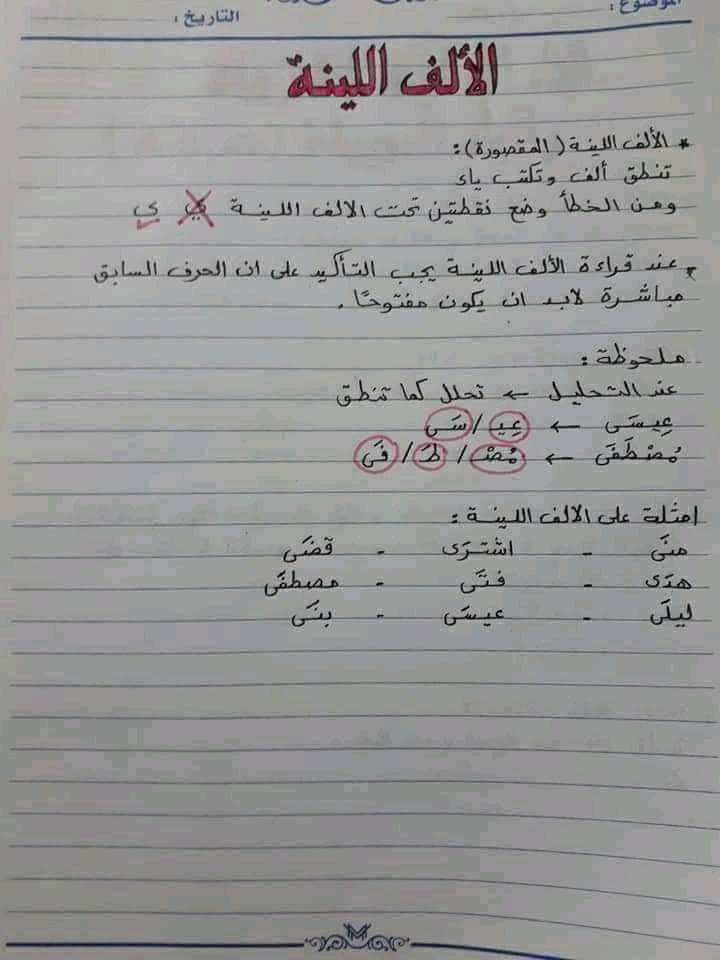 الموضوع :
التاريخ :
الألف اللينة
* الألف اللينة ( المقصورة ) :
تنطق ألف وتكتب ياء
ومن الخطأ وضع نقطتين تحت الالف اللينة ي ى
* عند قراءة الألف اللينة يجب التأكيد على ان الحرف السابق
مباشرة لابد ان يكون مفتوحًا .
ملحوظة :
عند التحليل ← تحلل كما تنطق
عِيسَى ← عِيـ / سَى
مُصْطَفَى ← مُصْ / طَـ / فَى
امثلة على الالف اللينة :
منَى - اشترَى - قضَى
هدَى - فتَى - مصطفَى
ليلَى - عيسَى - بنَى